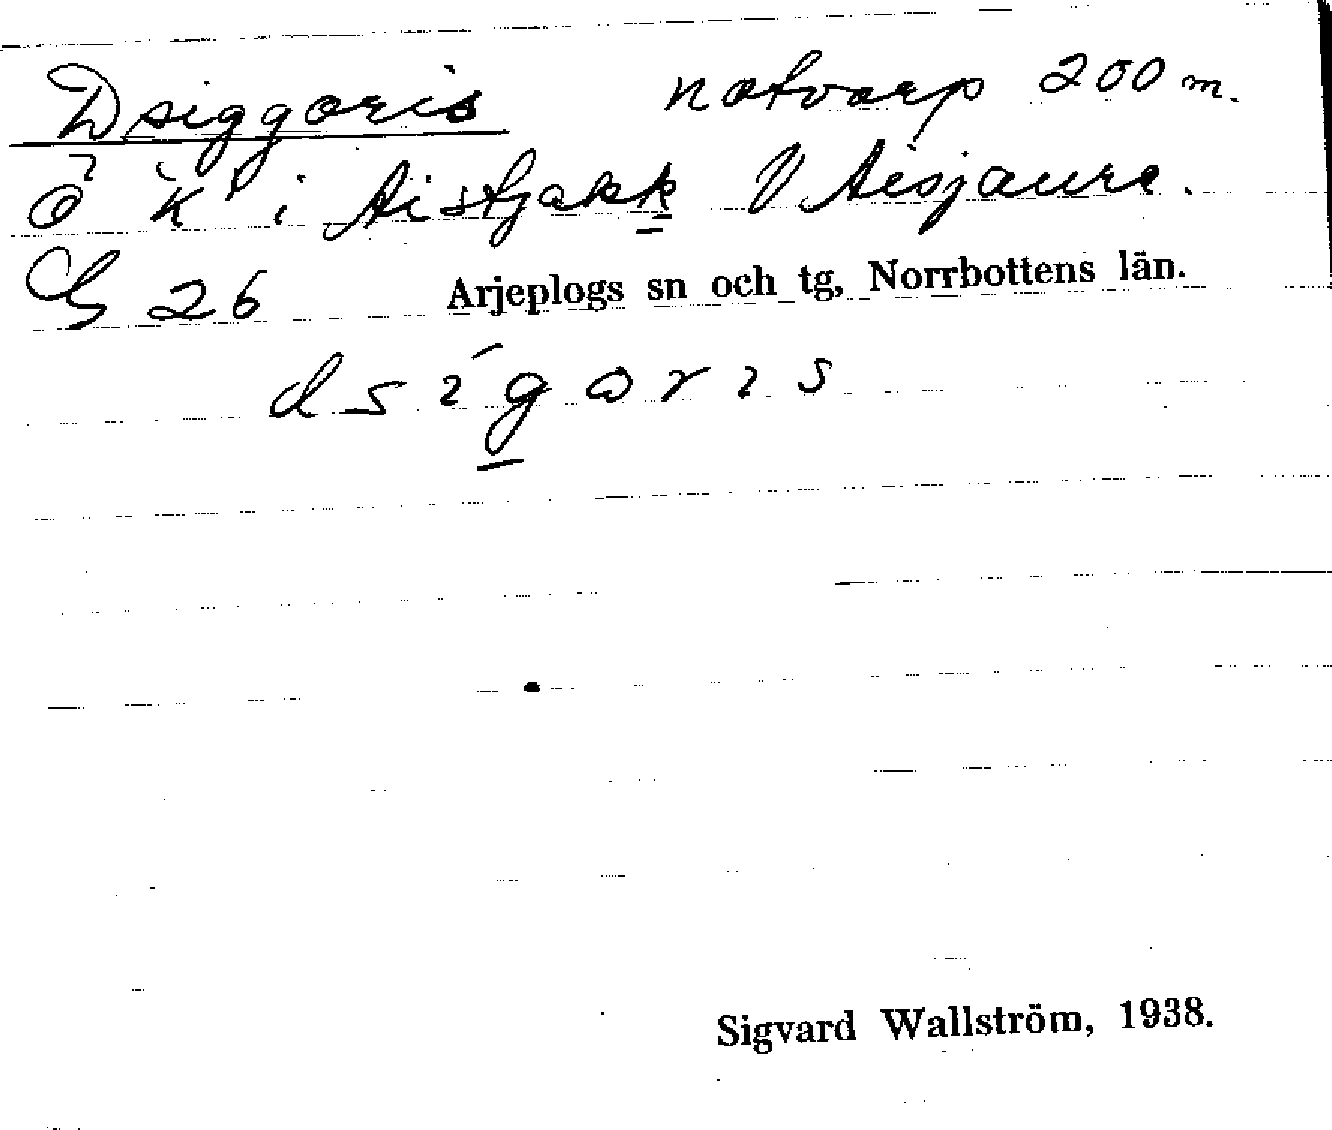 Dsiggaris notvarp 200 m.
Ö k i Aistjakk V Aisjaure.
G 26 Arjeplogs sn och tg, Norrbottens län.
dsígaris
Sigvard Wallström, 1938.